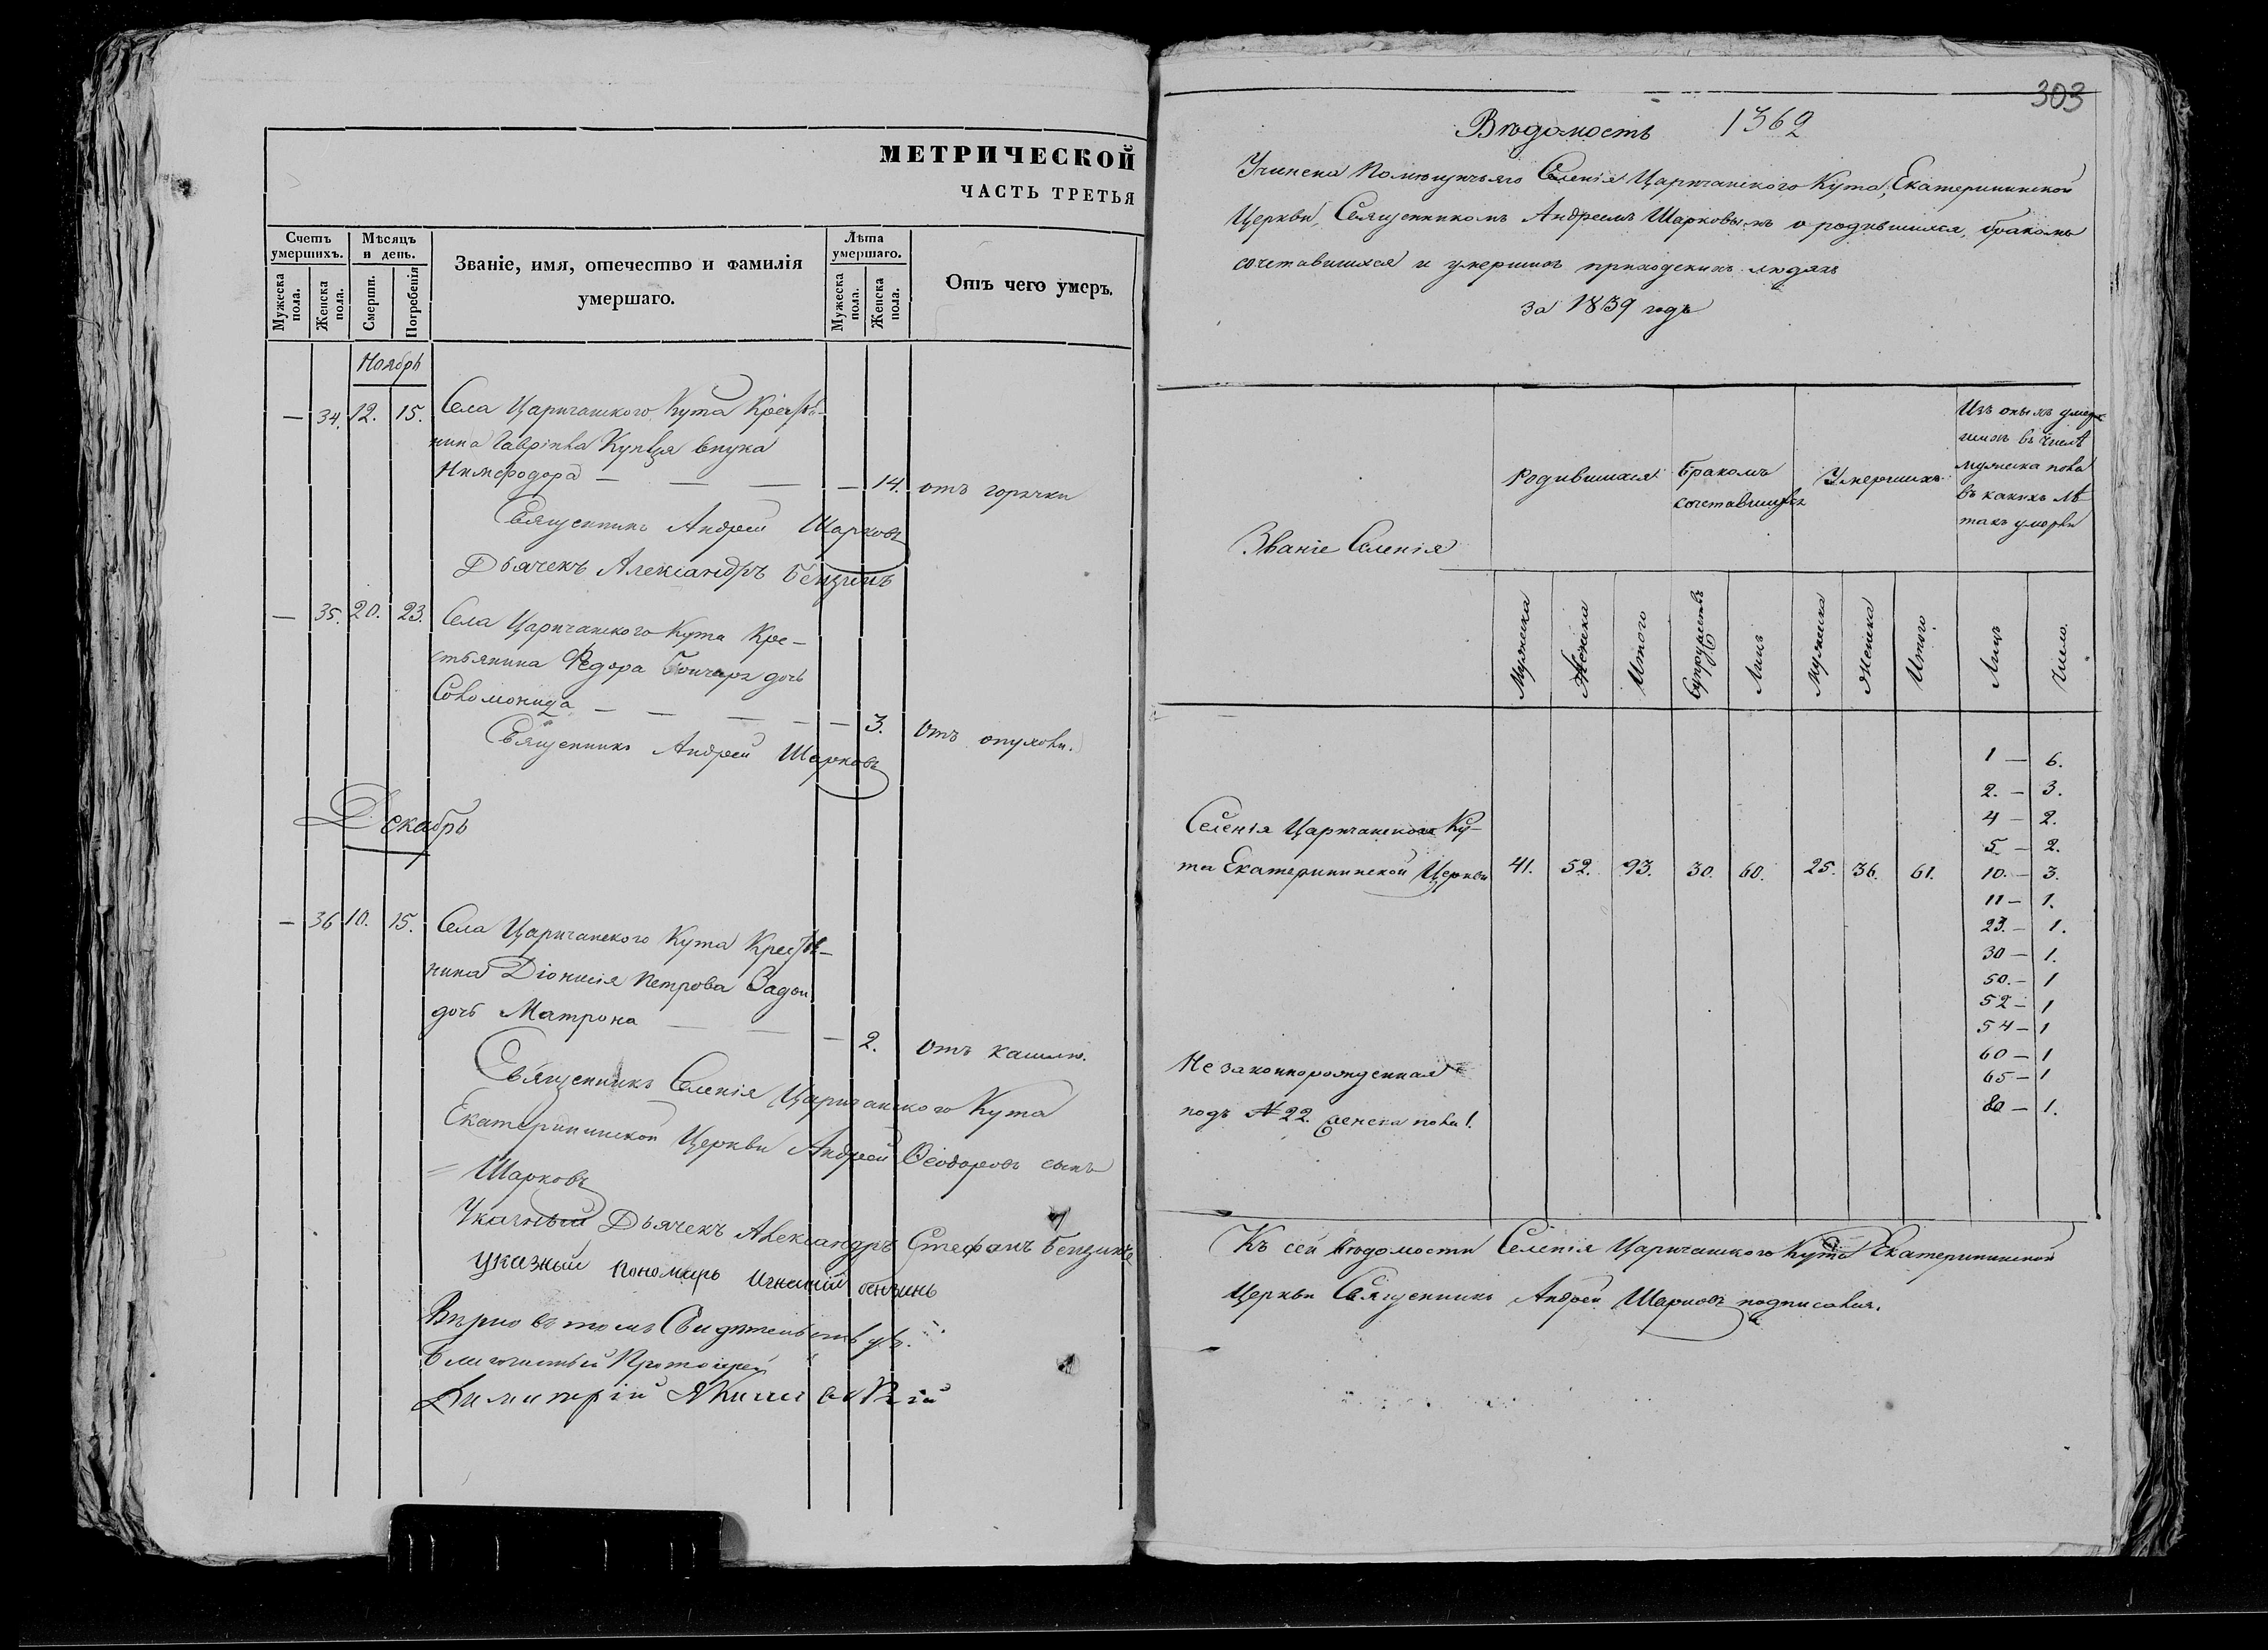 МЕТРИЧЕСКОЙ
ЧАСТЬ ТРЕТЬЯ
Счетъ умершихъ.
Мужеска пола.
Женска пола.
Мѣсяцъ и день.
Смерти.
Погребенія
Званіе, имя, отечество и фамилія
умершаго.
Лѣта умершаго.
Мужеска пола.
Женска пола.
Отъ чего умеръ.
Ноябрь
— 34. 12. 15. Села Царичанского Кута Крестья-
нина Гавріила внука
Нимфодора — — — — 14. отъ горячки
Священникъ Андрей Шарковъ
Дьячекъ Александръ Бензинъ
— 35. 20. 23. Села Царичанского Кута Кре-
стьянина Федора Гончара дочь
Соломонида — — — — — 3. отъ опухоли.
Священникъ Андрей Шарковъ
Декабрь
— 36 10. 15. Села Царичанского Кута Крестья-
нина Діонисія Петрова
дочь Матрона — — — 2. отъ кашлю.
Священникъ Селенія Царичанского Кута
Екатерининской Церкви Андрей Феодоровъ сынъ
Шарковъ
Указный Дьячекъ Александръ Стефанъ Бензинъ
указный пономарь Игнатій бензинь
Вѣрно въ томъ Свидѣтельствую.
Благочинный Протоіерей
Димитрій
303
Вѣдомость 1362
Учинена Помѣщичьяго Селенія Царичанского Кута, Екатерининской
Церкви, Священникомъ Андреемъ Шарковымъ о родившихся, бракомъ
сочетавшихся и умершихъ приходскихъ людяхъ
за 1839 годъ
Званіе Селенія
Родившихся
Мужеска
Женска
Итого
бракомъ
сочетавшихся
Супружествъ
Лицъ
Умершихъ
Мужеска
Женска
Итого.
Изъ оныхъ умер-
шихъ въ числѣ
мужеска пола
въ какихъ лѣ-
тахъ умерли
Лицъ
Число.
Селенія Царичанского Ку-
та Екатерининской Церкви 41. 52. 93. 30. 60. 25. 36. 61.
1 — 6.
2. — 3.
4 — 2.
5 — 2.
10. — 3.
11 — 1.
23. — 1.
30 — 1.
50. — 1
52 — 1
54 — 1
60 — 1
65 — 1
80 — 1.
Не законнорожденная
подъ № 22. женска пола 1.
Къ сей вѣдомости Селенія Царичанского Кута Екатерининской
Церкви Священникъ Андрей Шарковъ подписался.